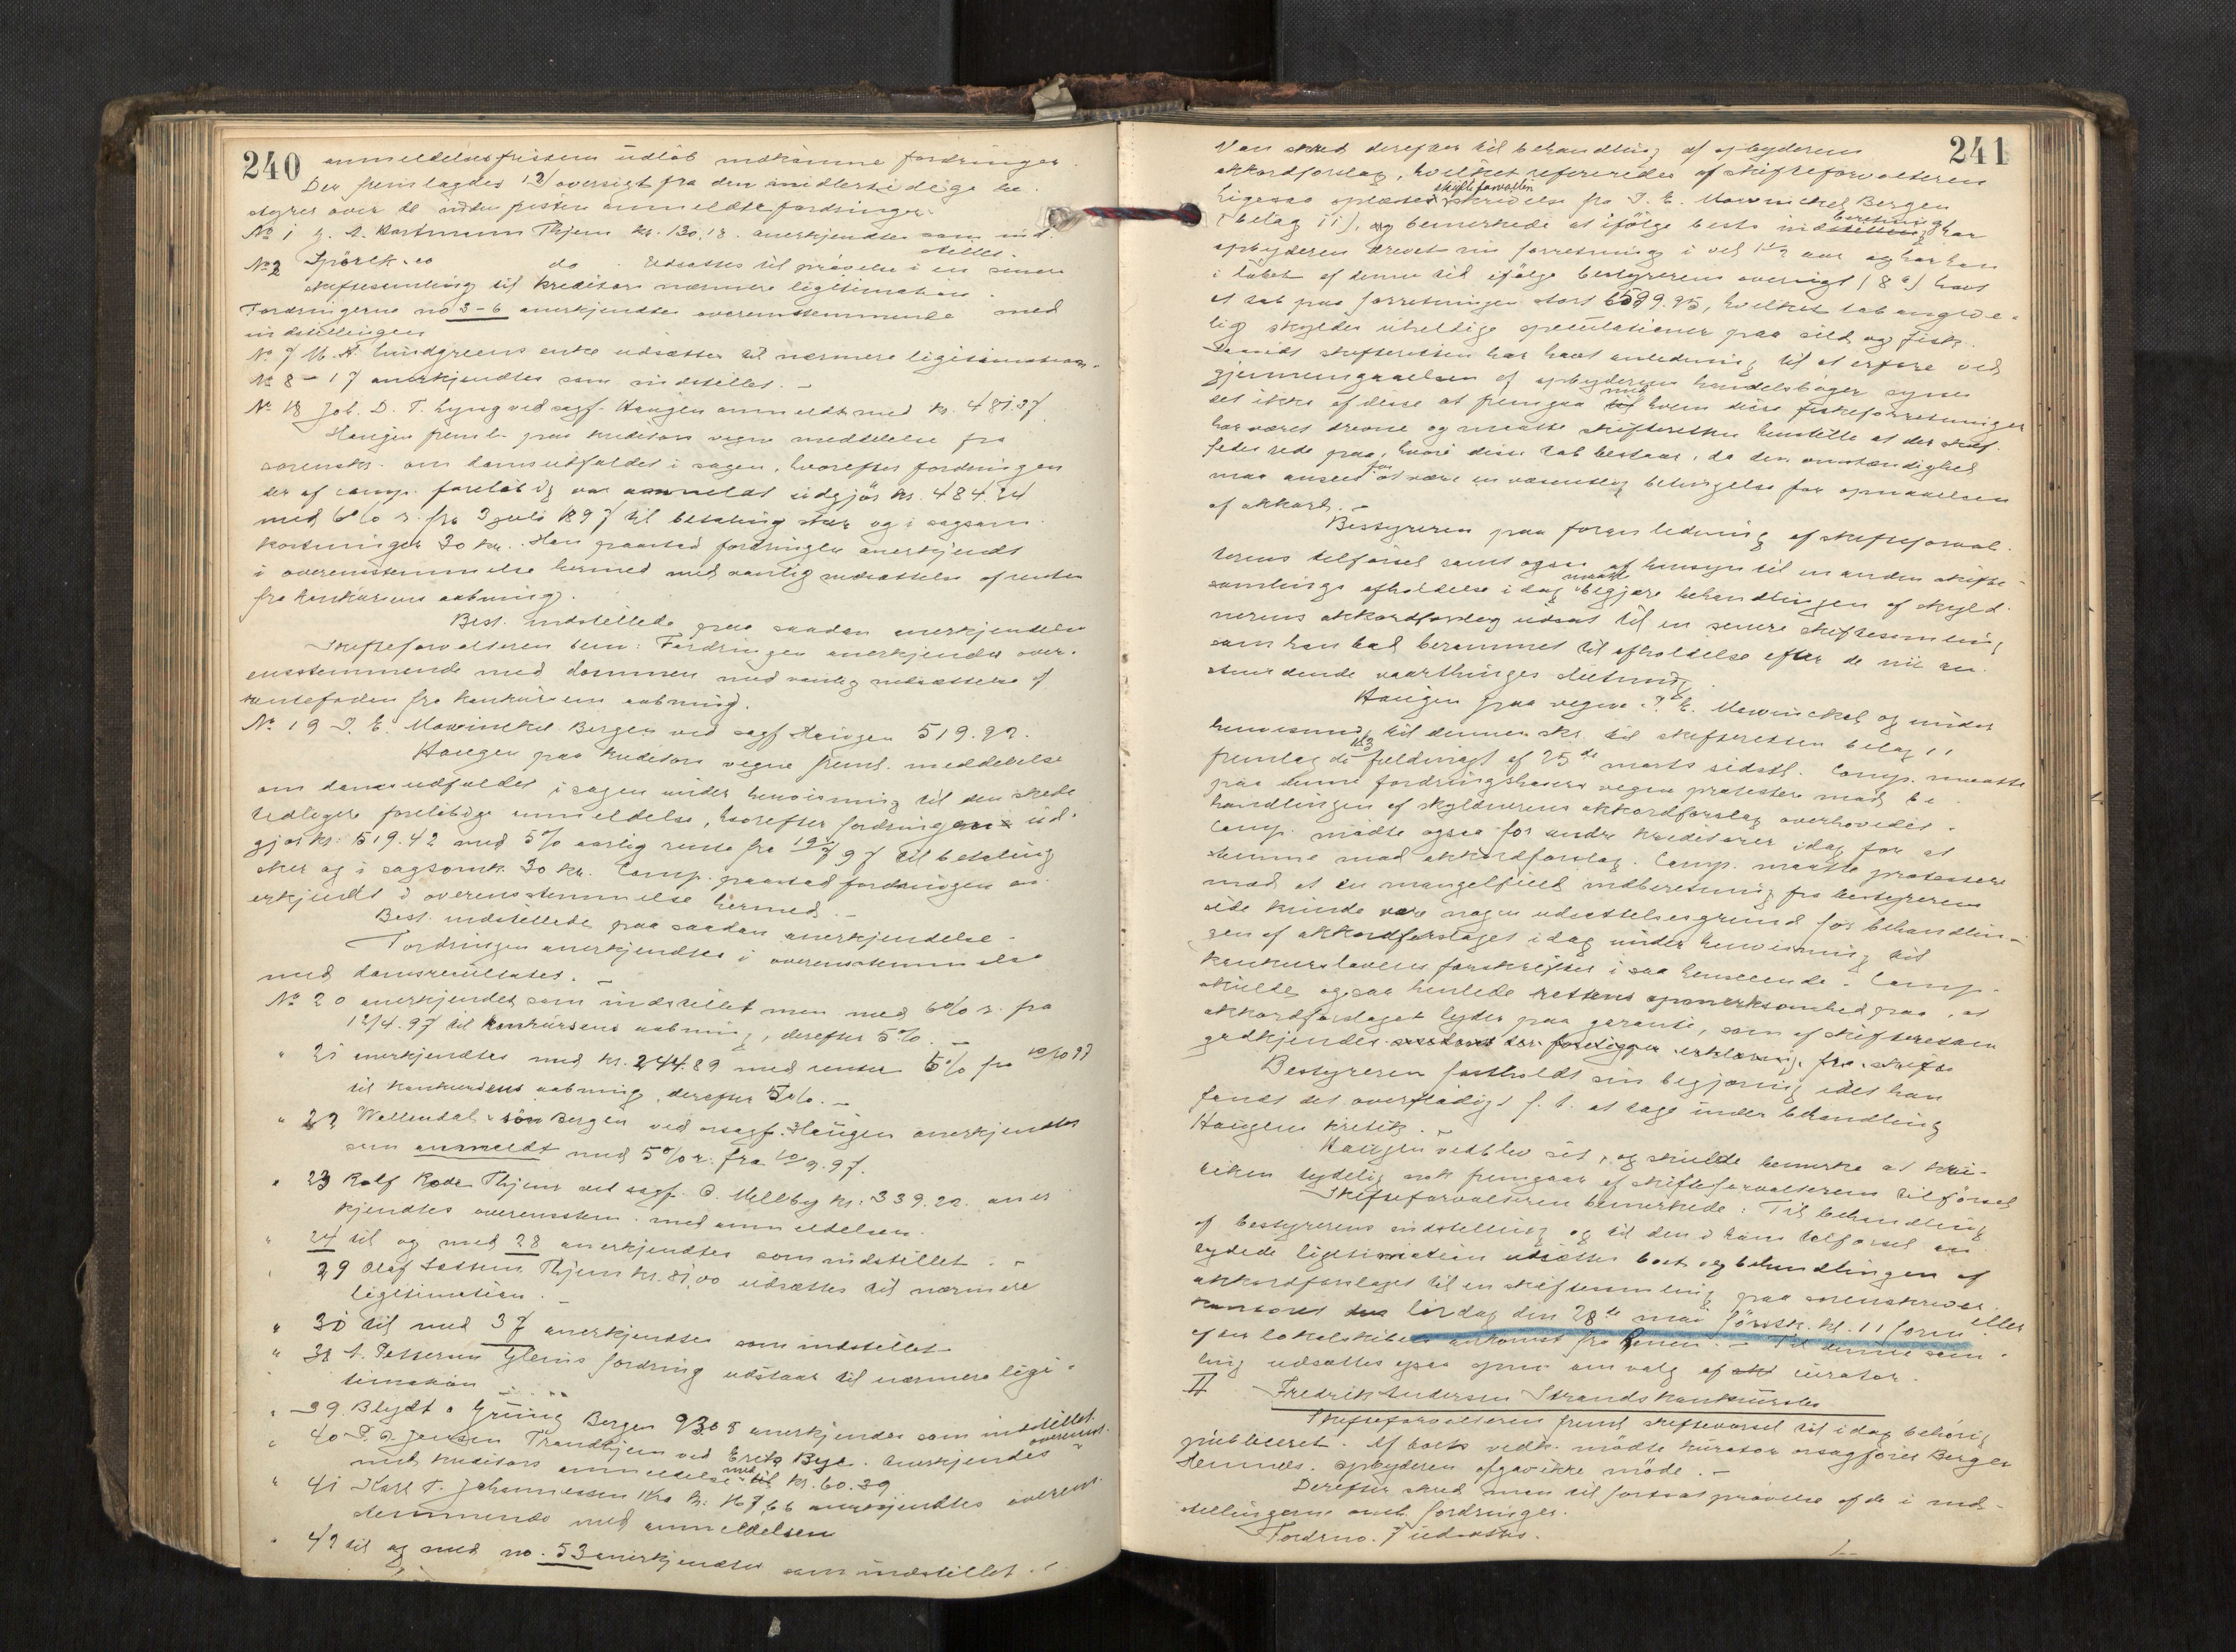 240
anmeldelsesfristens udløb indkomne fordringer.
Der fremlagdes 12) oversigt fra den midlertidige be-
styrer over de inden fristen anmeldte fordringer.
No 1 G. A. Hartmann Thjem kr. 130.18. anerkjendtes som ind-
stillet.
No 2 Spörck & co do. Udsattes til prøvelse i en senere
skiftesamling til kreditors nærmere legitimation.
Fordringerne no 3-6 anerkjendtes overensstemmende med
indstillingen
No 7 M. A. Lundgreens enke udsættes til nærmere legitimation.
No 8-17 anerkjendtes som indstillet. -
No 18 Joh. D. T. Lyng ved sagf. Haugen anmeldt med kr. 481.37
Haugen freml. paa kreditors vegne meddelelse fra
sorenskr. om domsudfaldet i sagen, hvorefter fordringen
der af comp. foreløbig var anmeldt udgjör kr. 484.24
med 6% r. fra 3 juli 1897 til betaling sker og i sagsom-
kostninger 30 kr. Han paastod fordringen anerkjendt
i overensstemmelse hermed med vanlig nedsættelse af renten
fra konkursens aabning.
Best. indstillede paa saadan anerkjendelse
Skifteforvalteren bem: Fordringen anerkjendes over-
ensstemmende med dommen med vanlig nedsættelse af
rentefoden fra konkursens aabning.
No 19 J. E. Mowinckel Bergen ved sagf Haugen 519.92.
Haugen paa kreditors vegne freml. meddelelse
om domsudfaldet i sagen under henvisning til den skede
tidligere foreløbige anmeldelse, hvorefter fordringen ud-
gjør kr. 519.42 med 5% aarlig rente fra 19/7 97 til betaling
sker og i sagsomk. 30 kr. Comp. paastod fordringen an-
erkjendt i overensstemmelse hermed. -
Best. indstillede paa saadan anerkjendelse -
Fordringen anerkjendtes i overensstemmelse
med domsresultatet. -
No 20 anerkjendes som indstillet men med 6% r. fra
12/4.97 til konkursens aabning, derefter 5%. -
" 21 anerkjendtes med kr. 244.89 med renter 6% fra 10/10 97
til konkursens aabning, derefter 5%. -
" 22 Wallendahl & sön Bergen ved orsagf. Haugen anerkjendtes
som anmeldt med 5% r. fra 10/9.97.
" 23 Rolf Rode Thjem ved sagf. O. Mellbye kr. 339.22. aner-
kjendtes overensstem. med anmeldelsen.
" 24 til og med 28 anerkjendtes som indstillet. -
" 29 Olaf Thjem kr. 81.00 udsættes til nærmere
legitimation. -
" 30 til med 37 anerkjendtes som indstillet
" 38 A. Pettersen fordring udstaar til nærmere legi-
timation
" 39. Blydt & Grung Bergen 93.05 anerkjendes som indstillet
" 40 P. O. Jensen Trondhjem ved Byе. Anerkjendes overenst.
med kreditors anmeldelse til med kr. 60.39
" 41 Karl T. Johannessen Kra kr. 167,66 anerkjendtes overens-
stemmende med anmeldelsen
" 42 til og med no. 53 anerkjendtes som indstillet.
241
Man skred derefter til behandling af opbyderens
akkordforslag, hvilket refereredes af skifteforvalteren
Ligesaa oplæstes skifteforvalteren skrivelse fra J. E. Mowinckel Bergen
(bilag 11), og bemerkede at ifölge bests indstilling beretning har
opbyderen drevet sin forretning i vel 1 1/2 aar og har han
i löbet af denne tid ifölge bestyrerens oversigt (8a) havt
et tab paa forretningen stort 6589.95, hvilket tab angive-
lig skyldes uheldige spekulationer paa sild og fisk.
Saavidt skifteretten har havt anledning til at erfare ved
gjennemgaaelsen af opbyderens handelsböger synes
det ikke af disse at fremgaa til med hvem disse fiskeforretninger
har været drevne og maatte skifteretten henstille at der skaf-
fedes rede paa, hvori disse tab bestaar, da den omstændighed
maa ansees for at være en væsentlig betingelse for opnaaelsen
af akkord. -
Bestyreren paa foranledning af skifteforval-
terens tilførsel samt ogsaa af hensyn til en anden skifte-
samlings afholdelse i dag maatte begjære behandlingen af skyld-
nerens akkordforslag udsat til en senere skiftesamling
som han bad berammet til afholdelse efter de nu an-
stundende vaarthinges slutning.
Haugen paa vegne J. E. Mowinckel og under
henvisning til dennes skr. til skifteretten bilag 11
fremlagde 13 fuldmagt af 25de marts sidstl. Comp. maatte
paa denne fordringshavers vegne protestere mod be-
handlingen af skyldnerens akkordforslag overhovedet.
Comp. mödte ogsaa for andre kreditorer idag for at
stemme mod akkordforslag. Comp. maatte protestere
mod at en mangelfuld indberetning fra bestyrerens
side kunde være nogen udsættelsesgrund for behandlin-
gen af akkordforslaget idag under henvisning til
konkurslovens forskrifter i saa henseende. Comp.
skulde ogsaa henlede rettens opmerksomhed paa, at
akkordforslaget lyder paa garanti, som af skifteretten
godkjendes der foreligger erklæring fra skifte
Bestyreren fastholdt sin begjæring idet han
fandt det overflødigt f. t. at tage under behandling
Haugens kritik. -
Haugen vedblev sit, og skulde bemerke at kri-
tiken tydelig nok fremgaar af skifteforvalterens tilførsel
Skifteforvalteren bemerkede: Til behandling
af bestyrerens indstilling og til den i hans tilførsel an-
tydede legitimation udsættes boet og behandlingen af
akkordforslaget til en skiftesamling paa sorenskriver-
kontoret lördag den 28de mai förstk. kl. 11 form eller
efter lokalskibets ankomst fra Renen. - Til denne sam-
ling udsættes ogsaa spm. om valg af curator.
II Fredrik Andersen Strands konkursbo
Skifteforvalteren freml. skiftevarsel til idag behörig
publiceret. Af boets vedk. mödte kurator orsagförer Berger
Hemnes. Opbyderen afgav ikke möde. -
Derefter skred man til fortsat prövelse af de i ind-
stillingerne omh. fordringer.
Fordr no. 7 udsattes.